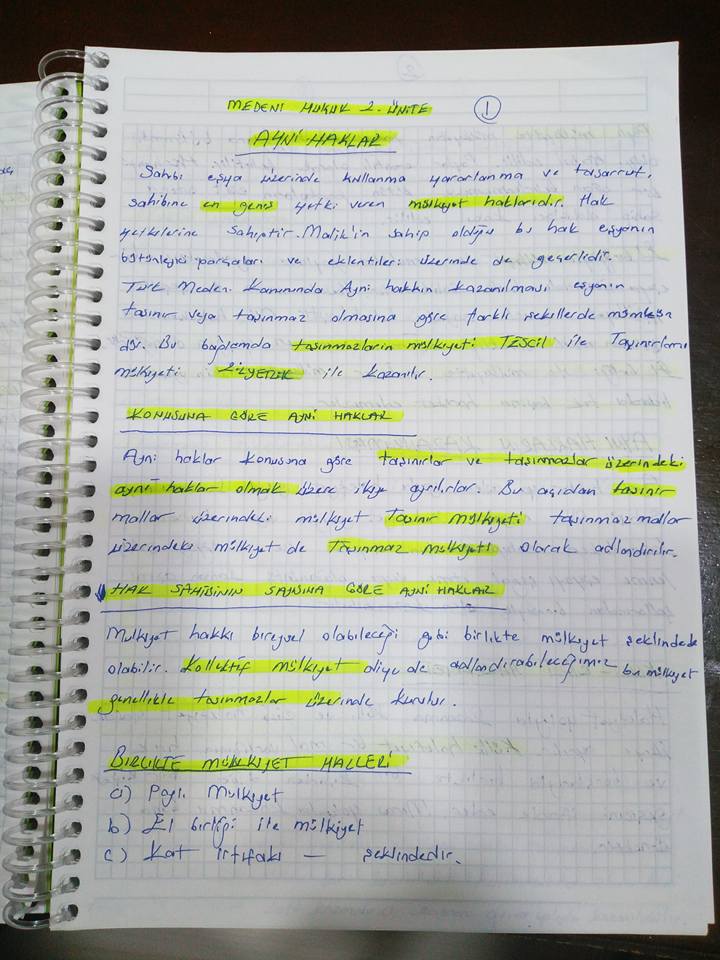 MEDENİ HUKUK 2. ÜNİTE 1
AYNİ HAKLAR
Sahibi eşya üzerinde kullanma yararlanma ve tasarruf,
sahibine en geniş yetki veren mülkiyet haklarıdır. Hak
yetkilerine sahiptir. Malik'in sahip olduğu bu hak eşyanın
bütünleyici parçaları ve eklentileri üzerinde de geçerlidir.
Türk Medeni Kanununda Ayni hakkın kazanılması eşyanın
taşınır veya taşınmaz olmasına göre farklı şekillerde mümkün
dür. Bu bağlamda taşınmazların mülkiyeti TESCİL ile Taşınırların
mülkiyeti ZİLYETLİK ile kazanılır.
KONUSUNA GÖRE AYNİ HAKLAR
Ayni haklar konusuna göre taşınırlar ve taşınmazlar üzerindeki
ayni haklar olmak üzere ikiye ayrılırlar. Bu açıdan taşınır
mallar üzerindeki mülkiyet Taşınır mülkiyeti taşınmaz mallar
üzerindeki mülkiyet de Taşınmaz mülkiyeti olarak adlandırılır.
HAK SAHİBİNİN SAYISINA GÖRE AYNİ HAKLAR
Mülkiyet hakkı bireysel olabileceği gibi birlikte mülkiyet şeklindede
olabilir. Kollektif mülkiyet diye de adlandırabileceğimiz bu mülkiyet
genellikle taşınmazlar üzerinde kurulur.
BİRLİKTE MÜLKİYET HALLERİ
a) Paylı Mülkiyet
b) El birliği ile mülkiyet
c) Kat irtifakı — şeklindedir.